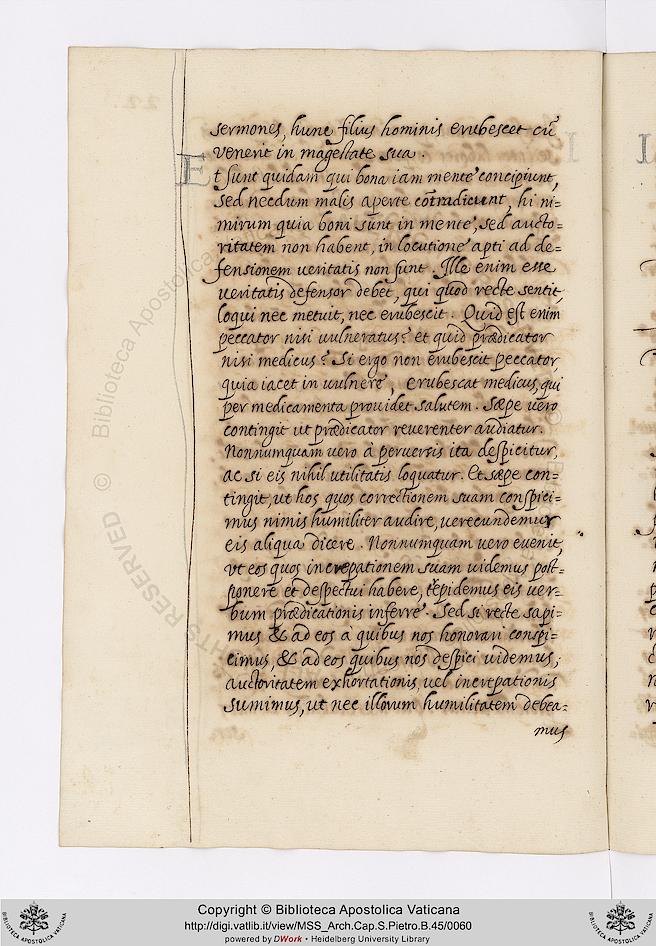 sermones, hunc filius hominis erubescet cũ
venerit in magestate sua.
Et sunt quidam qui bona iam mente concipiunt,
sed necdum malis aperte cõtradicunt, hi ni=
mirum quia boni sunt in mente, sed aucto=
ritatem non habent, in locutione apti ad de=
fensionem veritatis non sunt. Ille enim esse
veritatis defensor debet, qui quod recte sentit,
loqui nec metuit, nec erubescit. Quid est enim
peccator nisi vulneratus? et quid prædicator
nisi medicus? Si ergo non erubescit peccator,
quia iacet in vulnere, erubescat medicus, qui
per medicamenta prouidet salutem. Sæpe vero
contingit ut prædicator reuerenter audiatur.
Nonnumquam vero à peruersis ita despicitur,
ac si eis nihil utilitatis loquatur. Et sæpe con=
tingit, ut hos quos correctionem suam conspici=
mus nimis humiliter audire, uerecundemur
eis aliqua dicere. Nonnumquam vero euenit,
vt eos quos increpationem suam videmus post=
ponere et despectui habere, trepidemus eis ver=
bum prædicationis inferre. Sed si recte sapi=
mus & ad eos à quibus nos honorari conspi=
cimus, & ad eos quibus nos despici uidemus,
auctoritatem exhortationis, uel increpationis
sumimus, ut nec illorum humilitatem debea=
mus
© Biblioteca Apostolica
RIGHTS RESERVED
Copyright © Biblioteca Apostolica Vaticana
http://digi.vatlib.it/view/MSS_Arch.Cap.S.Pietro.B.45/0060
powered by DWork • Heidelberg University Library